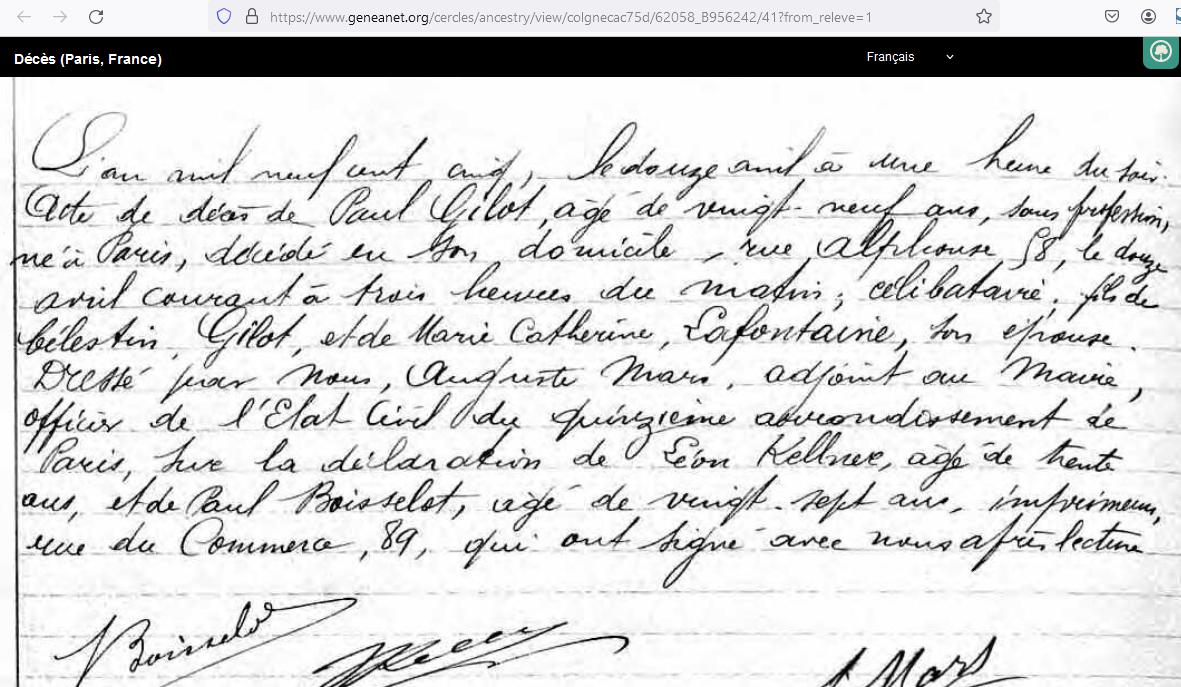 https://www.geneanet.org/cercles/ancestry/view/colgnecac75d/62058_B956242/41?from_releve=1
Décès (Paris, France)
Français
L'an mil neuf cent cinq, le douze avril à une heure du soir.
Acte de décès de Paul Gilot, âgé de vingt-neuf ans, sans profession,
né à Paris, décédé en son domicile, rue Alphonse 58, le douze
avril courant à trois heures du matin; célibataire, fils de
Célestin, Gilot, et de Marie Catherine, Lafontaine, son épouse.
Dressé par Nous, Auguste Mars, adjoint au Maire,
officier de l'Etat Civil du quinzième arrondissement de
Paris, sur la déclaration de Léon Kellner, âgé de trente
ans, et de Paul Boisselot, âgé de vingt-sept ans, imprimeurs,
rue du Commerce, 89, qui ont signé avec nous après lecture
Boisselot
A Mars